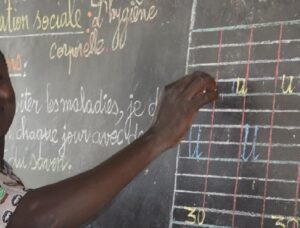 ation sociale : L'hygiène
corporelle
ns :
iter les maladies, je d
chaque jour avec de
du savon.
u u
30 30